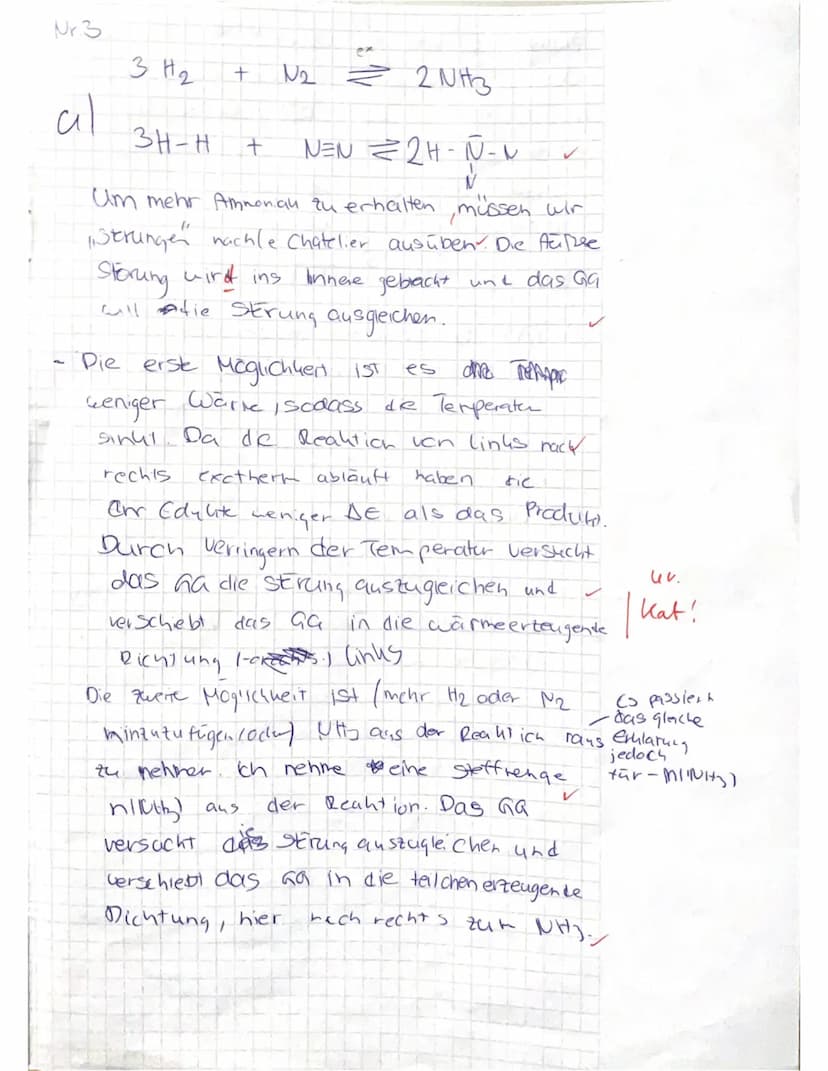 Nr 3
ex
3 H2 + N2 ⇌ 2 NH3
a)
3H-H + N≡N ⇌ 2H - N̄ - N ✓
N
Um mehr Ammoniak zu erhalten, müssen wir
„Störungen" nach le Chatelier ausüben ✓. Die Äußre
Störung wird ins Innere gebracht und das GG
will die Störung ausgleichen. ✓
- Die erste Möglichkeit ist es
weniger Wärme, sodass die Temperatur
sinkt. Da die Reaktion von links nach
rechts exotherm abläuft haben die
weniger ΔE als das Produkt.
Durch verringern der Temperatur versucht
das GG die Störung auszugleichen und ✓
uv.
Kat!
verschebt das GG in die wärmeerzeugende
Richtung links
Die zweite Möglichkeit ist (mehr H2 oder N2
hinzuzufügen (oder) NH3 aus der Reaktion raus
zu nehmen. Ich nehme eine Stoffmenge
↪ passiert
das gleiche
Erklärung
jedoch
für - n(NH3)
n(NH3) aus der Reaktion. Das GG ✓
versucht die Störung auszugleichen und
verschiebt das GG in die teilchenerzeugende
Richtung, hier nach rechts zum NH3. ✓